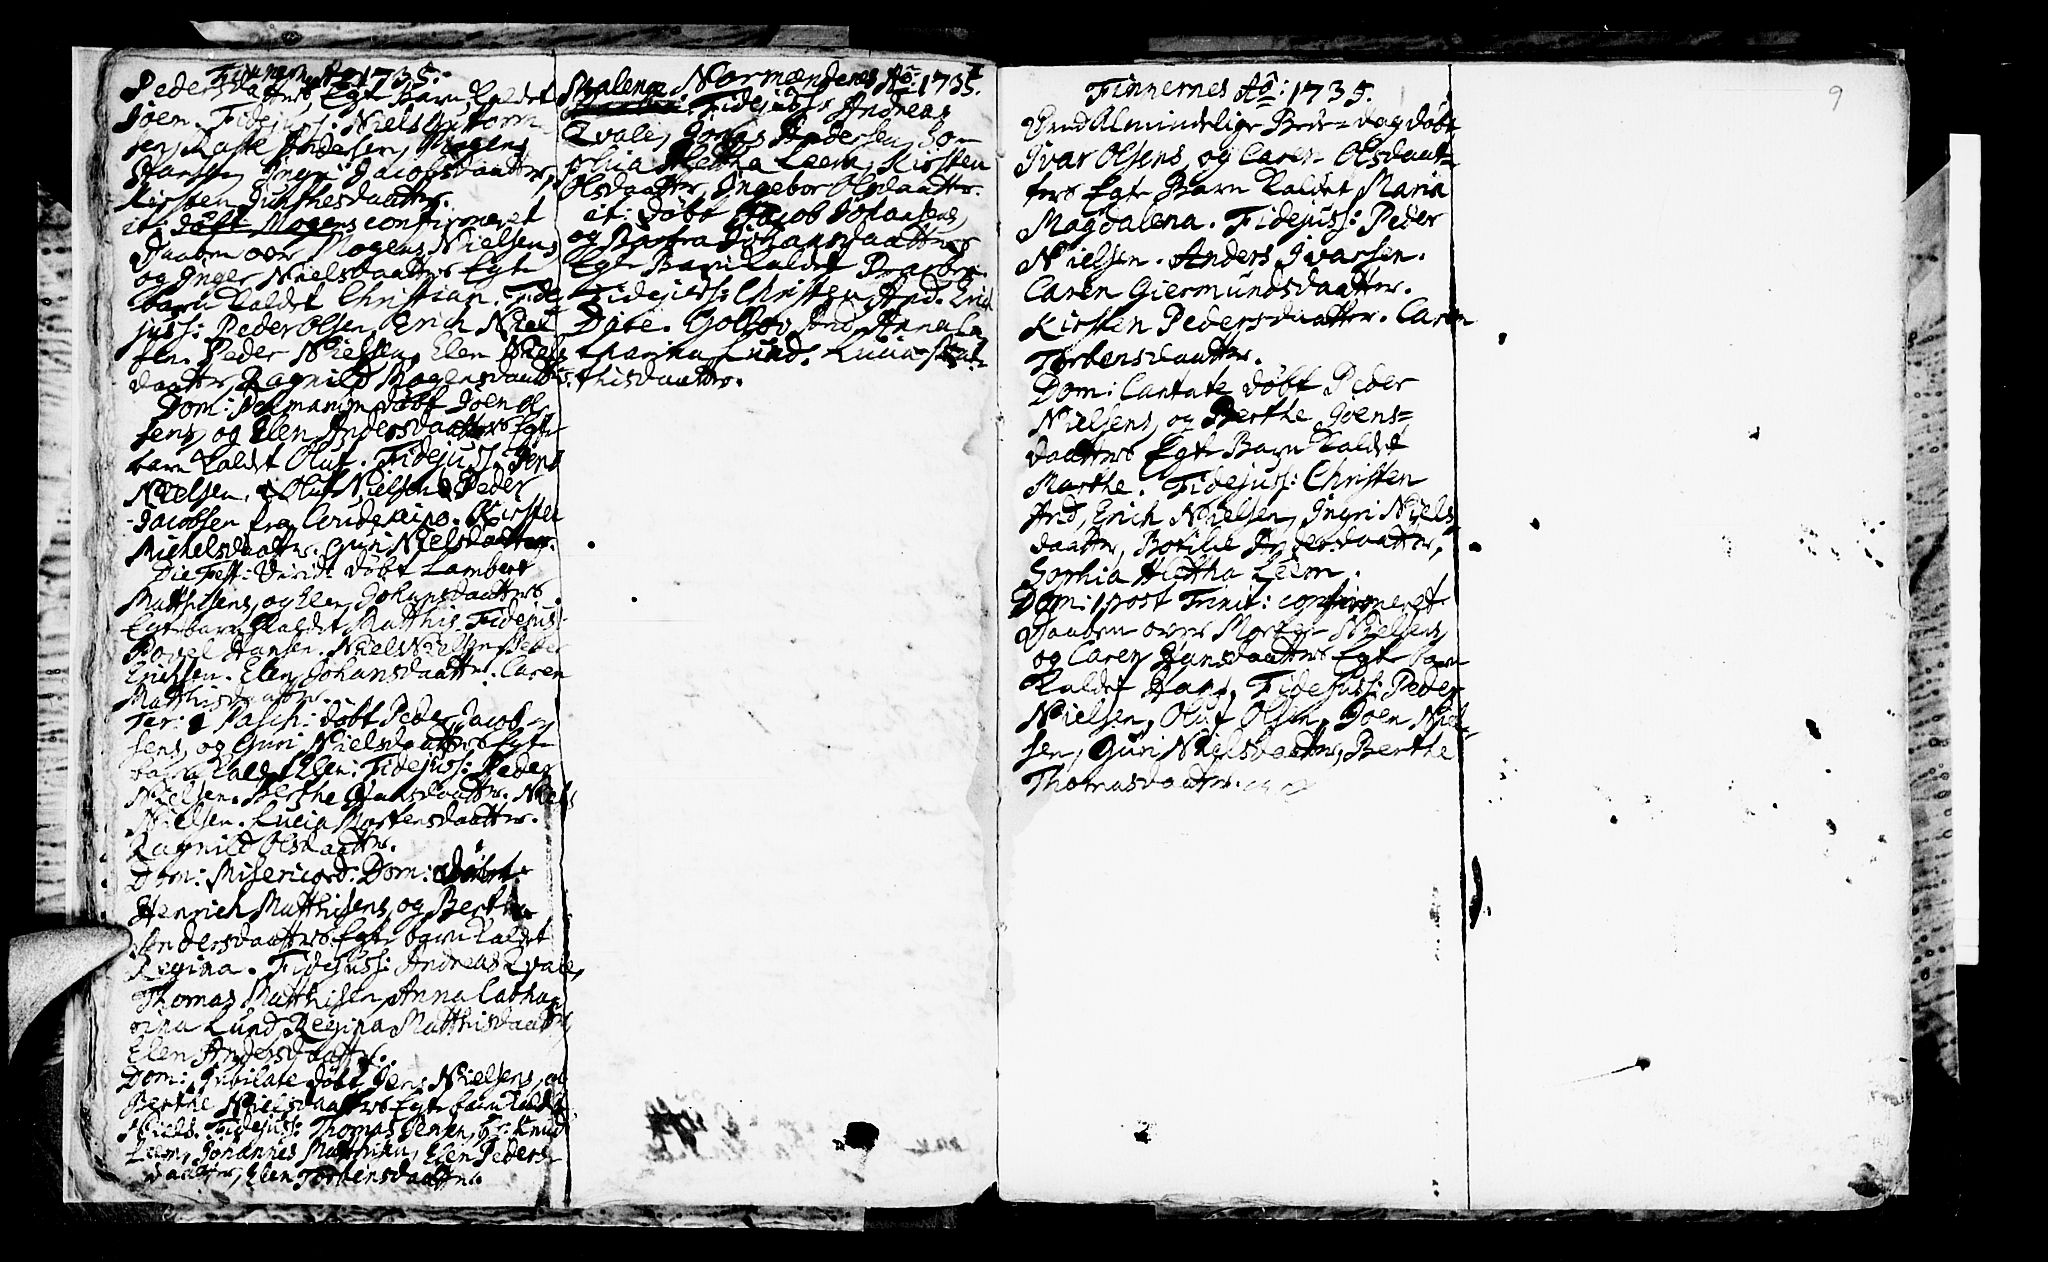 Finnernes Ao 1735.
Pedersdaatters Egte Barn kaldet
Joen. Fidejuss: Niels Guttorm
sen, Anders
Hansen Ingri Jacobsdaatter,
Kirsten Junthesdaatter.
it: døbt Mogens confirmeret
Daaben over Mogens Nielsens
og Inger Nielsdaatters Egte
barn kaldet Christian. Fide
juss: Peder Olsen, Erich Niel
sen. Peder Nielsen, Elen Niels
daatter, Ragnild Mogensdaatter.
Dom: Palmarum døbt Joen Ol
sens, og Elen Andersdaatters Egte
barn kaldet Oluf. Fidejuss: Jens
Nielsen, Oluf Nielsen Peder
Jacobsen fra Kirsten
Michelsdaatter. Guri Nielsdaatter.
Die Fest: Virid: døbt Lambert
Matthisens, og Elen Johansdaatters
Egte barn kaldet Matthis. Fidejuss:
Povel Hansen. Niels Nielsen Peder
Erichsen. Elen Johansdaatter. Caren
Matthisdaatter.
Fer: 2 Pasch: døbt Peder Jacob
sens, og Guri Nielsdaatters Egte
barn kaldet Elen: Fidejuss: Peder
Nielsen. Berthe Hansdaatter. Niels
Nielsen. Lucia Mortensdaatter.
Ragnild Olsdaatter.
Dom: Misericord: Dom: døbt
Henrich Matthisens, og Berthe
Andersdaatters Egte barn kaldet
Regina. Fidejuss: Andreas Qvale,
Thomas Matthisen, Anna Catha
rina Lund, Regina Matthisdaatter,
Elen Andersdaatter.
Dom: Jubilate døbt Jens Nielsens, og
Berthe Nielsdaatters Egte barn kaldet
Niels. Fidejuss: Thomas Jensen, Hr: Knud
Leem, Johannes Matthisen, Elen Peders
daatter, Elen Torbensdaatter.
Normændenes Ao: 1735.
Fidejuss: Andreas
Qvale, Jonas Andersen, So
phia Hettha Leem, Kirsten
Olsdaatter, Ingebor Olsdaatter.
it: døbt Jacob Johansens,
og Barbra Johansdaatters
Egte Barn kaldet
Fidejuss: Christen And. Erich
Dite. Gollov And. Anna Ca
tharina Lund. Lucia Mat
thisdaatter.
9
Finnernes Ao: 1735.
Almindelige Bede-dag døbt
Ivar Olsens, og Caren Olsdaat=
ters Egte Barn kaldet Maria
Magdalena. Fidejuss: Peder
Nielsen. Anders Ivarsen.
Caren Giermundsdaatter.
Kirsten Pedersdaatter. Caren
Torbensdaatter.
Dom: Cantate døbt Peder
Nielsens, og Berthe Joens=
daatters Egte Barn kaldet
Marthe. Fidejuss: Christen
And, Erich Nielsen, Ingri Niels
daatter, Botilde Andersdaatter,
Sophia Hettha Leem.
Dom: 1 post Trinit: confirmeret
Daaben over Morten Nielsens
og Caren Hansdaatters Egte barn
kaldet Hans. Fidejuss: Peder
Nielsen, Oluf Olsen, Joen Niel
sen, Guri Nielsdaatter, Berthe
Thomasdaatter.